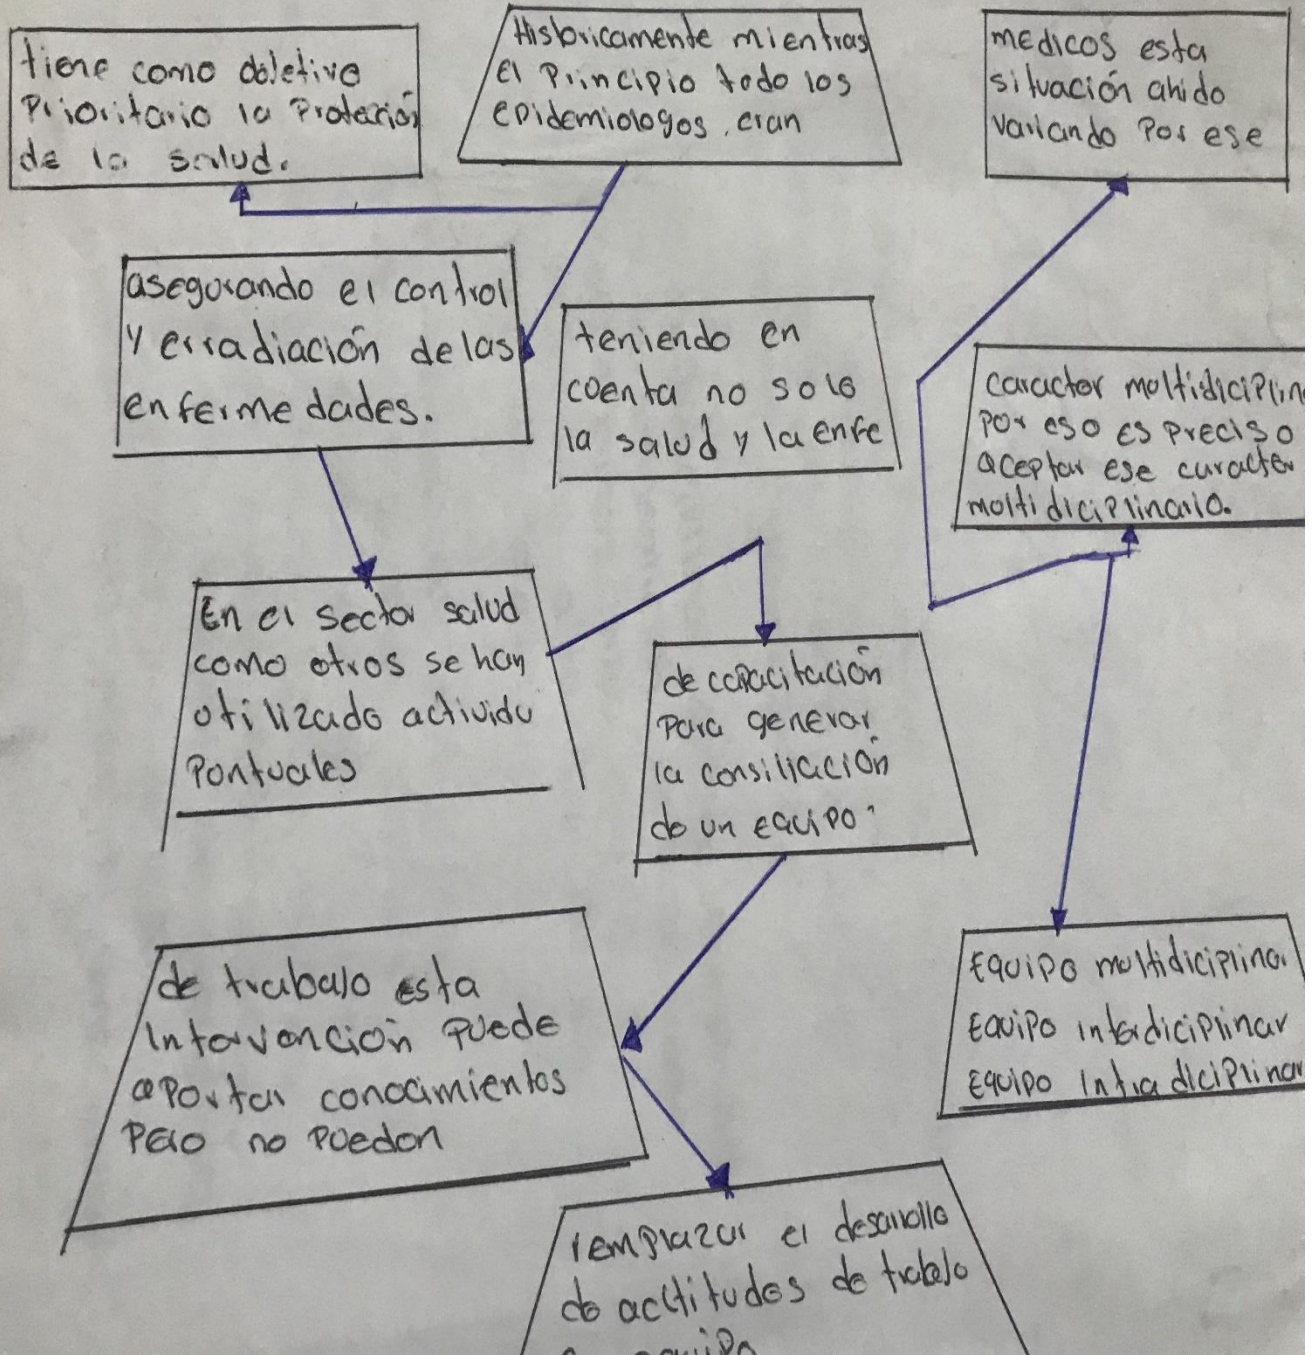 tiene como obletivo
Prioritario la Proteción
de la salud.
Historicamente mientras
el Principio todo los
epidemiologos, eran
medicos esta
situación ahido
variando Por ese
asegurando el control
y erradiación de las
enfermedades.
teniendo en
coenta no solo
la salud y la enfe
caracter moltidiciplin
por eso es preciso
aceptar ese caracter
moltidiciplinario.
En el sector salud
como otros se han
otilizado activida
Pontuales
de capacitación
para generar
la consiliación
de un equipo
de trabalo esta
intervención puede
aportar conocimientos
Pero no pueden
Equipo multidiciplinar
Equipo interdiciplinar
Equipo intradiciplinar
remplazar el desarrollo
de actitudes de trabalo
equipo